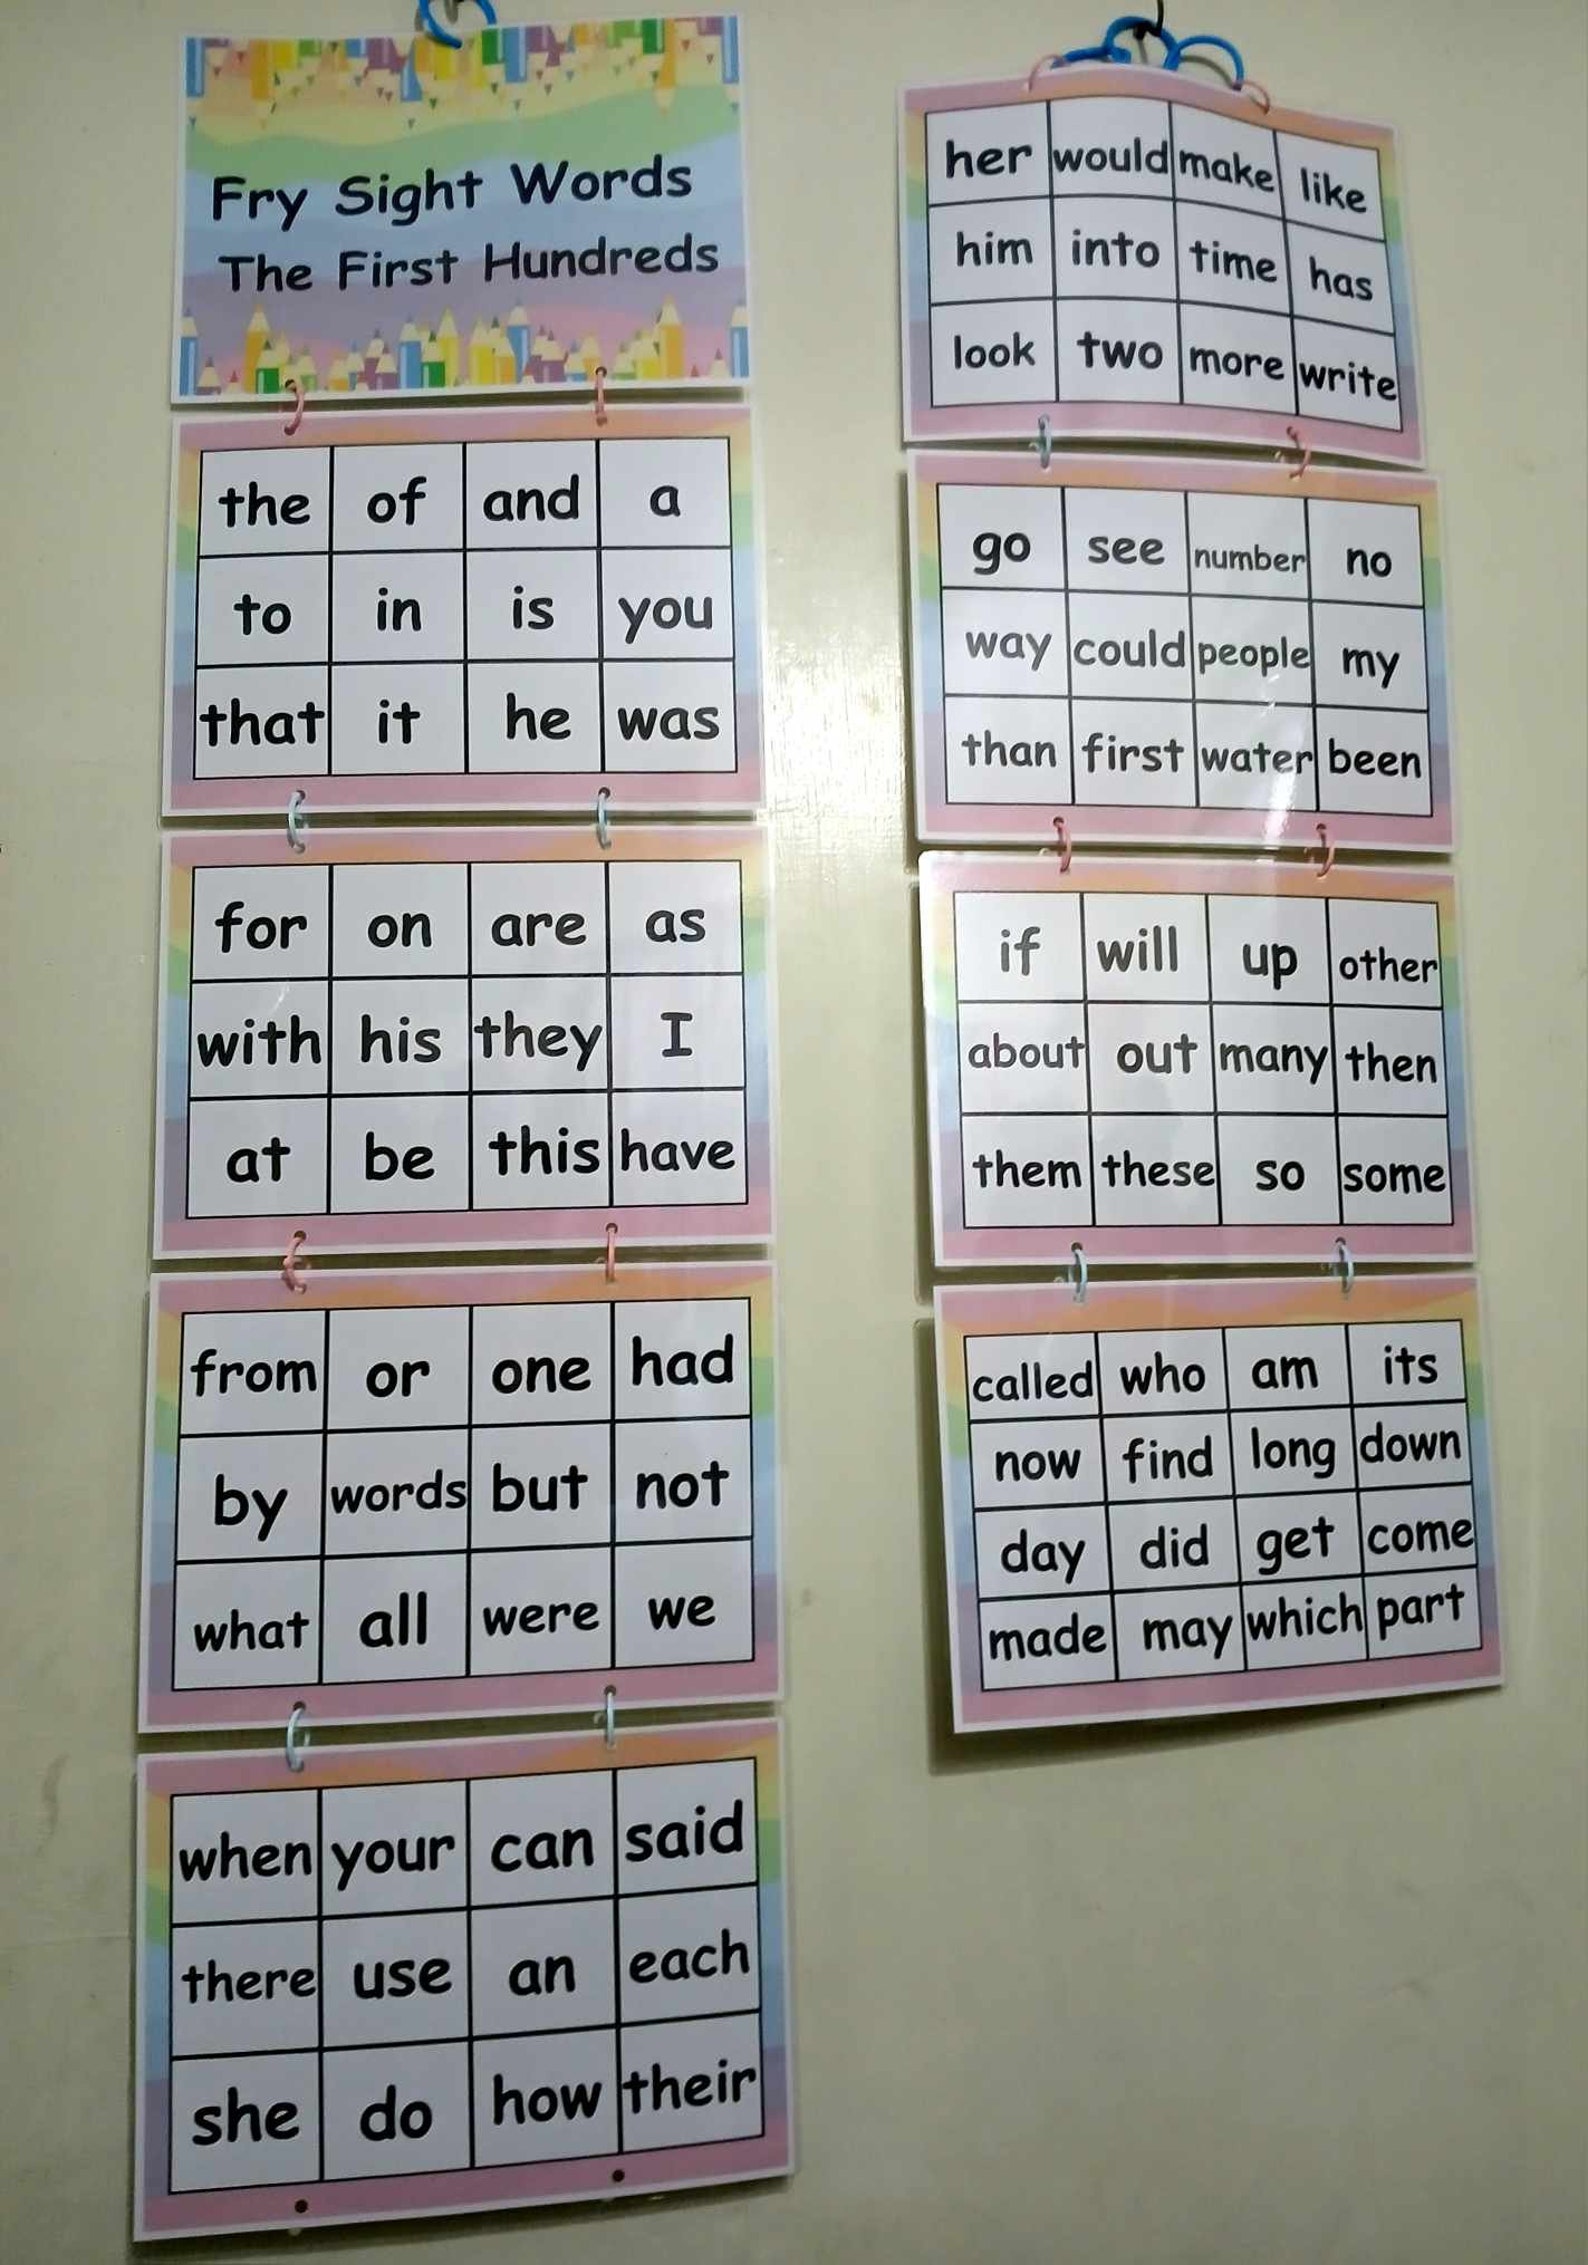 Fry Sight Words
The First Hundreds
the of and a
to in is you
that it he was
for on are as
with his they I
at be this have
from or one had
by words but not
what all were we
when your can said
there use an each
she do how their
her would make like
him into time has
look two more write
go see number no
way could people my
than first water been
if will up other
about out many then
them these so some
called who am its
now find long down
day did get come
made may which part